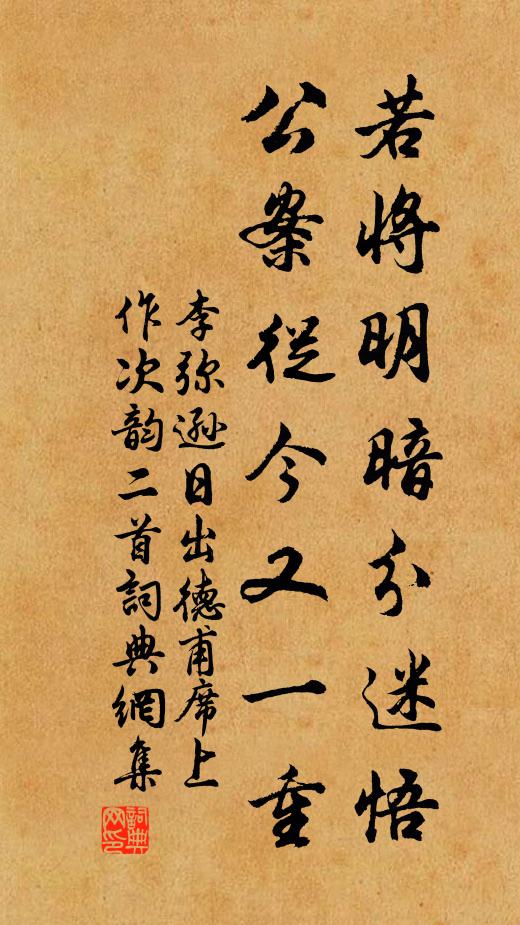 若将明暗分迷悟
公案從今又一重
李弥遜日出德甫席上
作次韵二首詞典網集
詞典网印